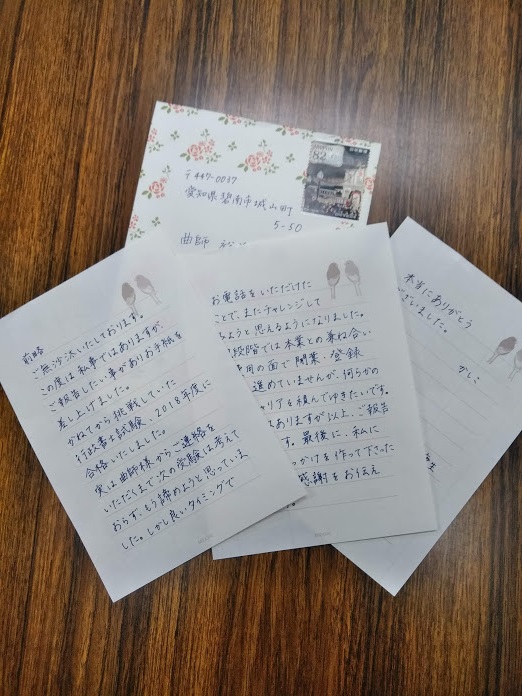 82
〒447-0037
愛知県碧南市城山町
5-50
曲師
前略
ご無沙汰いたしております。
この度は私事ではありますが、
ご報告したい事がありお手紙を
差し上げました。
かねてから挑戦していた
行政書士試験、2018年度に
合格いたしました。
実は曲師様からご連絡を
いただくまで次の受験は考えて
おらず、もう諦めようと思っていま
した。しかし良いタイミングで
お電話をいただけた
ことで、またチャレンジして
みようと思えるようになりました。
段階では本業との兼ね合い
費用の面で開業、登録
進めていませんが、何らかの
キャリアを積んでゆきたいです。
ありますが以上、ご報告
す。最後に、私に
っかけを作って下さった
感謝をお伝え
本当にありがとう
ございました。
かしこ